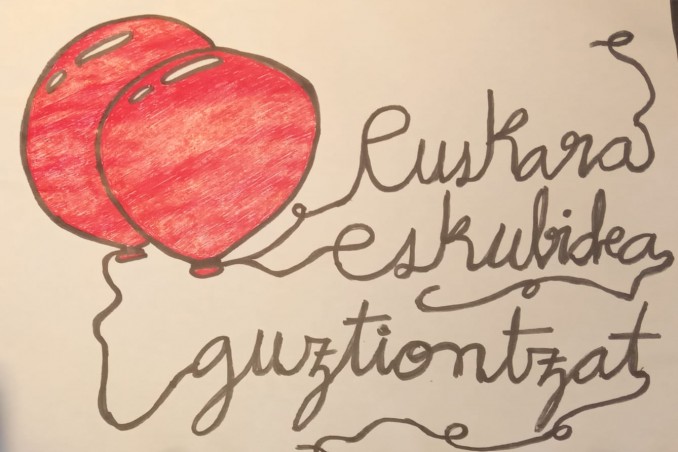 Euskara
eskubidea
guztiontzat